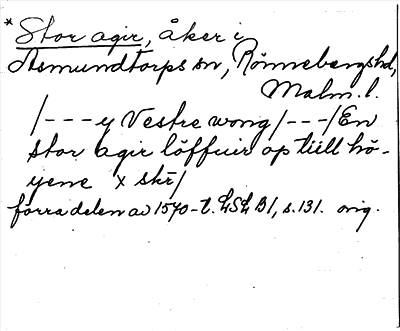 * Stor agir, åker i
Asmundtorps sn, Rönnebergshd,
Malm. l.
/---y Vestre wong/---/En
stor agir löffuir op tiill hö-
yene x skr/
förra delen av 1570-t. LSL B1, s.131. orig.